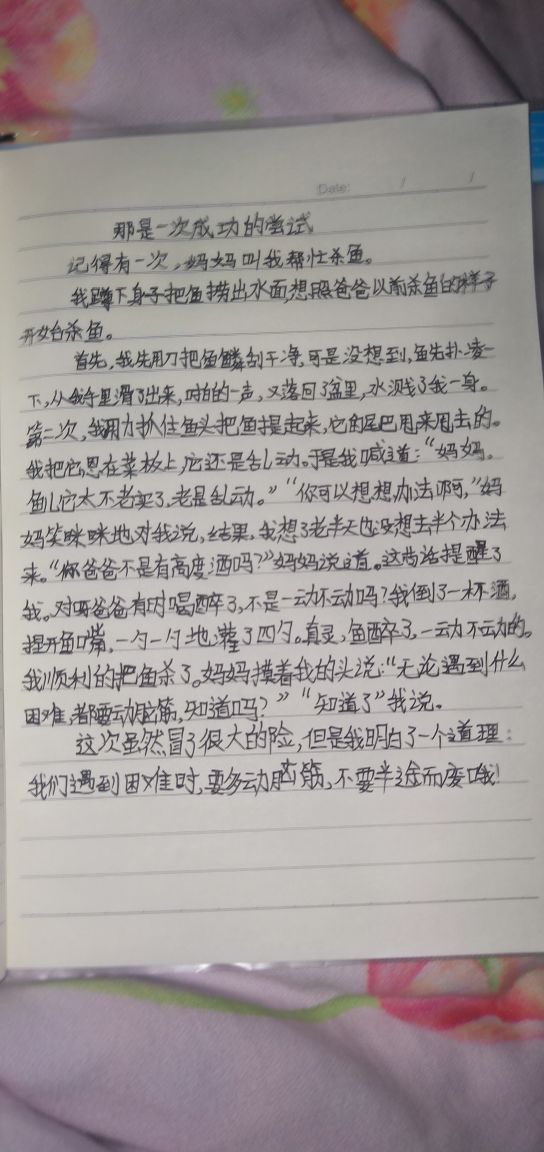 Date: / /
那是一次成功的尝试
记得有一次,妈妈叫我帮忙杀鱼。
我蹲下身子把鱼捞出水面,想照爸爸以前杀鱼的样子
开始杀鱼。
首先,我先用刀把鱼鳞刮干净,可是没想到,鱼先扑凌一
下,从我手里滑了出来,啪的一声,又落回了盆里,水溅了我一身。
第二次,我用力抓住鱼头把鱼提起来,它的尾巴甩来甩去的。
我把它摁在菜板上,它还是乱动。于是我喊道:“妈妈。
鱼儿它太不老实了,老是乱动。”“你可以想想办法啊,”妈
妈笑咪咪地对我说,结果,我想了老半天也没想去半个办法
来。“你爸爸不是有高度酒吗?”妈妈说道。这句话提醒了
我。对呀爸爸有时喝醉了,不是一动不动吗?我倒了一杯酒,
捏开鱼嘴,一勺一勺地灌了四勺。真灵,鱼醉了,一动不动的。
我顺利的把鱼杀了。妈妈摸着我的头说:“无论遇到什么
困难,都要动脑筋,知道吗?”“知道了”我说。
这次虽然冒了很大的险,但是我明白了一个道理:
我们遇到困难时,要多动脑筋,不要半途而废哦!